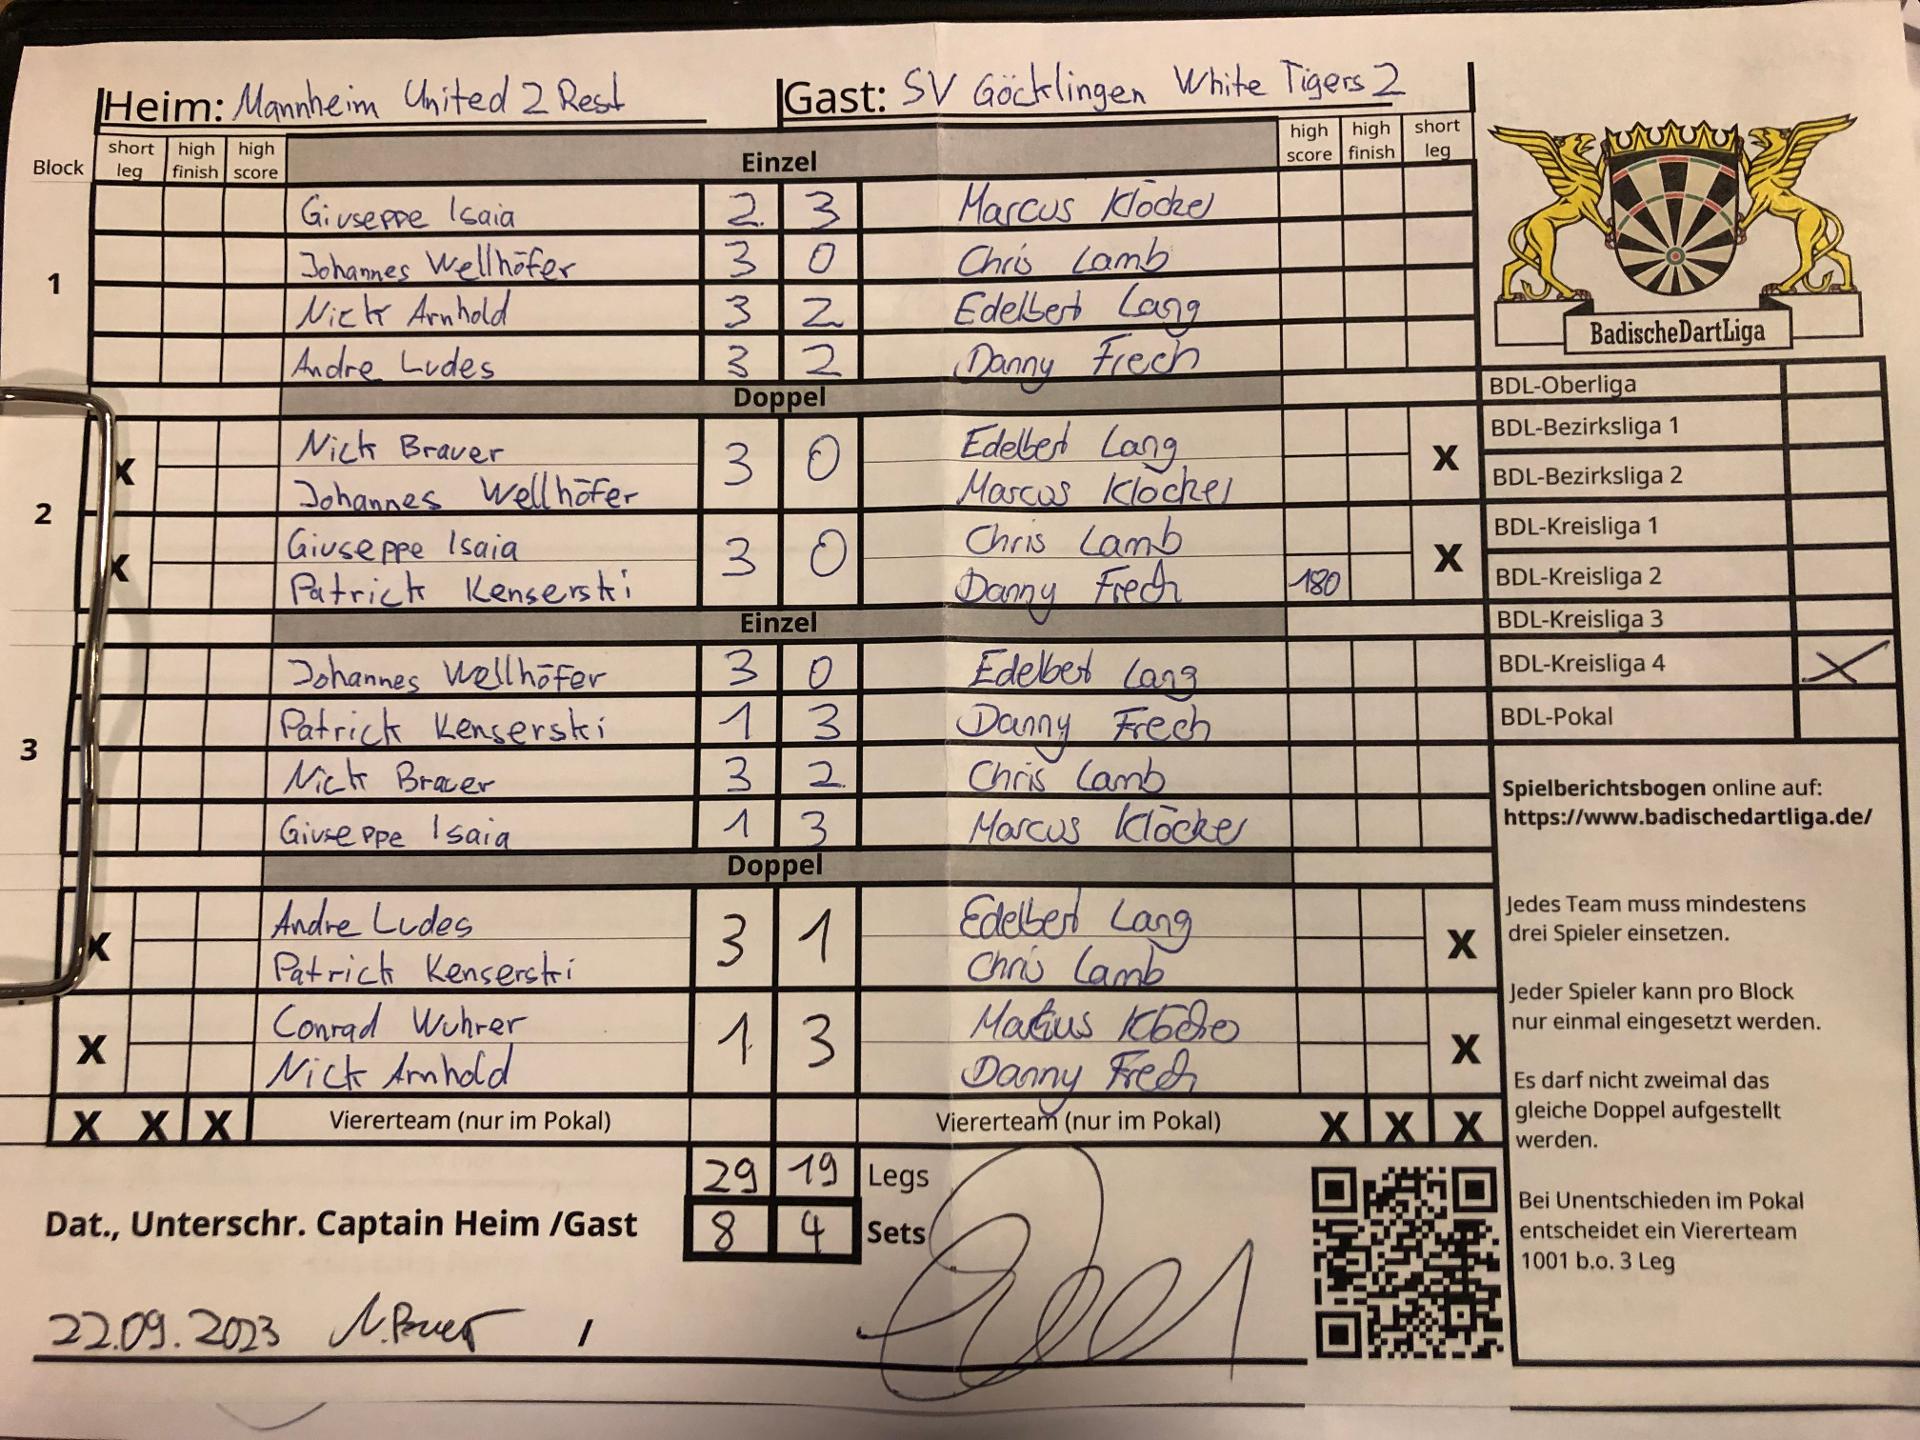 Heim: Mannheim United 2 Rest Gast: SV Göcklingen White Tigers 2
Block short leg high finish high score Einzel high score high finish short leg
1
Giuseppe Isaia 2 3 Marcus Klöckel
Johannes Wellhöfer 3 0 Chris Lamb
Nick Arnhold 3 2 Edelbert Lang
Andre Ludes 3 2 Danny Frech
Doppel
2
Nick Brauer Edelbert Lang
X 3 0 X
Johannes Wellhöfer Marcus Klöckel
Giuseppe Isaia Chris Lamb
X 3 0 X
Patrick Kenserski Danny Frech 180
Einzel
3
Johannes Wellhöfer 3 0 Edelbert Lang
Patrick Kenserski 1 3 Danny Frech
Nick Brauer 3 2 Chris Lamb
Giuseppe Isaia 1 3 Marcus Klöckel
Doppel
Andre Ludes Edelbert Lang
X 3 1 X
Patrick Kenserski Chris Lamb
Conrad Wuhrer
X 1 3 X
Nick Arnhold Danny Frech
X X X Viererteam (nur im Pokal) Viererteam (nur im Pokal) X X X
29 19 Legs
8 4 Sets
Dat., Unterschr. Captain Heim /Gast
22.09.2023 /
BadischeDartLiga
BDL-Oberliga
BDL-Bezirksliga 1
BDL-Bezirksliga 2
BDL-Kreisliga 1
BDL-Kreisliga 2
BDL-Kreisliga 3
BDL-Kreisliga 4 X
BDL-Pokal
Spielberichtsbogen online auf:
https://www.badischedartliga.de/
Jedes Team muss mindestens
drei Spieler einsetzen.
Jeder Spieler kann pro Block
nur einmal eingesetzt werden.
Es darf nicht zweimal das
gleiche Doppel aufgestellt
werden.
Bei Unentschieden im Pokal
entscheidet ein Viererteam
1001 b.o. 3 Leg